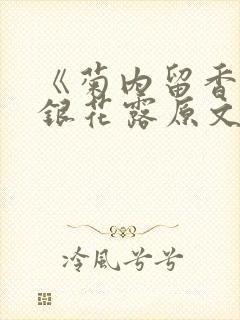 《菊内留香
銀花露原文
冷風兮兮